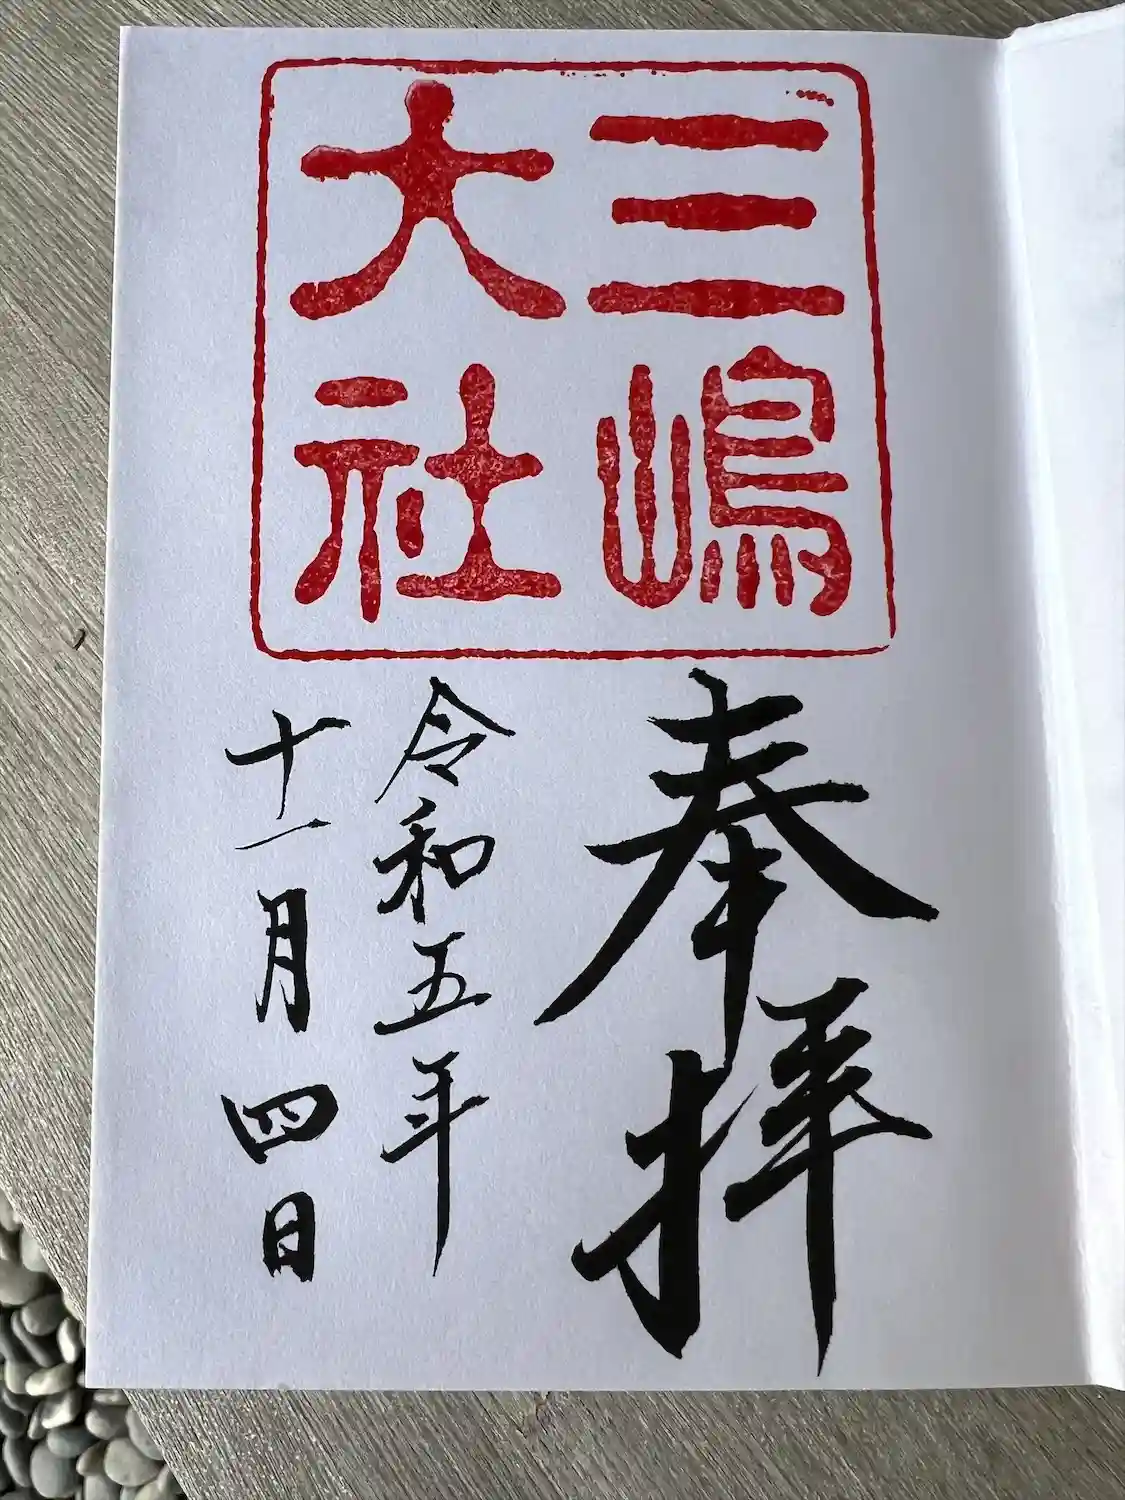 三嶋
大社
奉拝
令和五年
十一月四日